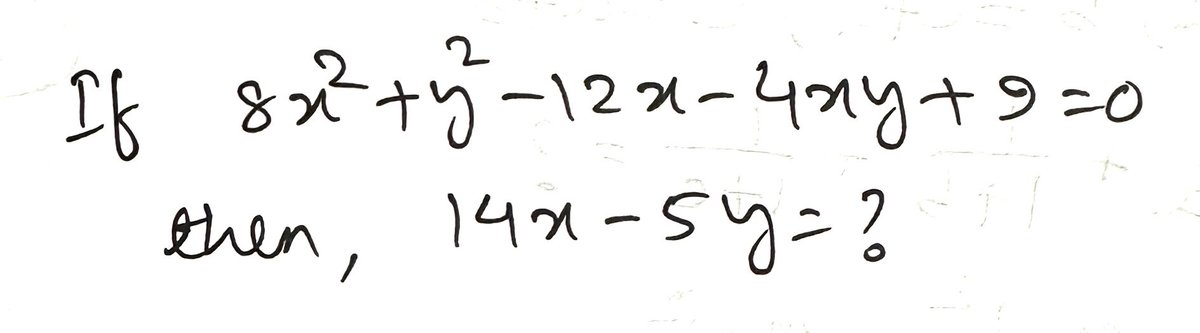 If 8x²+y²-12x-4xy+9=0
then, 14x-5y=?